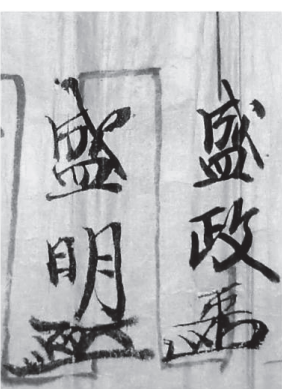 盛政
盛明